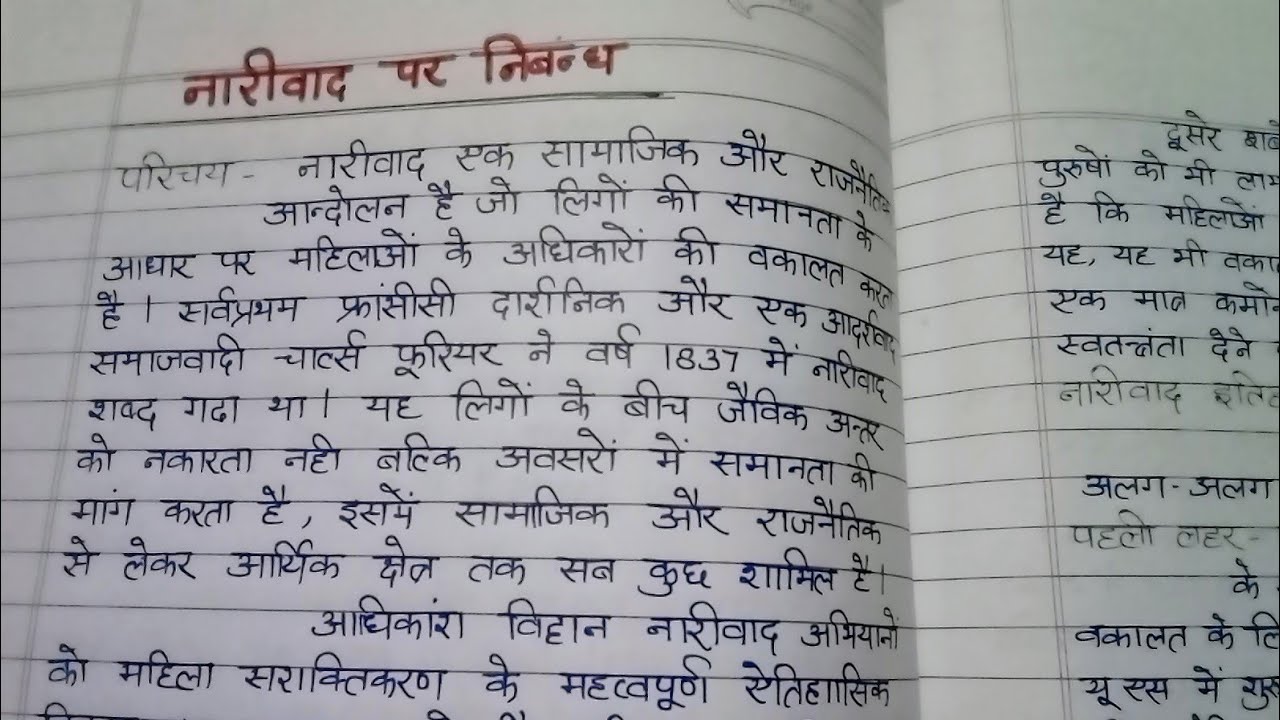 नारीवाद पर निबंन्ध
परिचय - नारीवाद एक सामाजिक और राजनैतिक
आन्दोलन है जो लिगों की समानता के
आधार पर महिलाओं के अधिकारों की वकालत करता
है । सर्वप्रथम फ्रांसीसी दार्शनिक और एक आदर्शवाद
समाजवादी चार्ल्स फूरियर ने वर्ष 1837 में नारीवाद
शब्द गढा था । यह लिगों के बीच जैविक अन्तर
को नकारता नही बल्कि अवसरों में समानता की
मांग करता है , इसमें सामाजिक और राजनैतिक
से लेकर आर्थिक क्षेत्र तक सब कुछ शामिल है।
अधिकांश विद्वान नारीवाद अभियानों
को महिला सशक्तिकरण के महत्वपूर्ण ऐतिहासिक
दूसरे
पुरुषों को भी
है कि महिलाओं
यह, यह भी
एक मात्र
स्वतन्त्रंता देने
नारीवाद
अलग-अलग
पहली लहर-
के
वकालत के
यू एस में